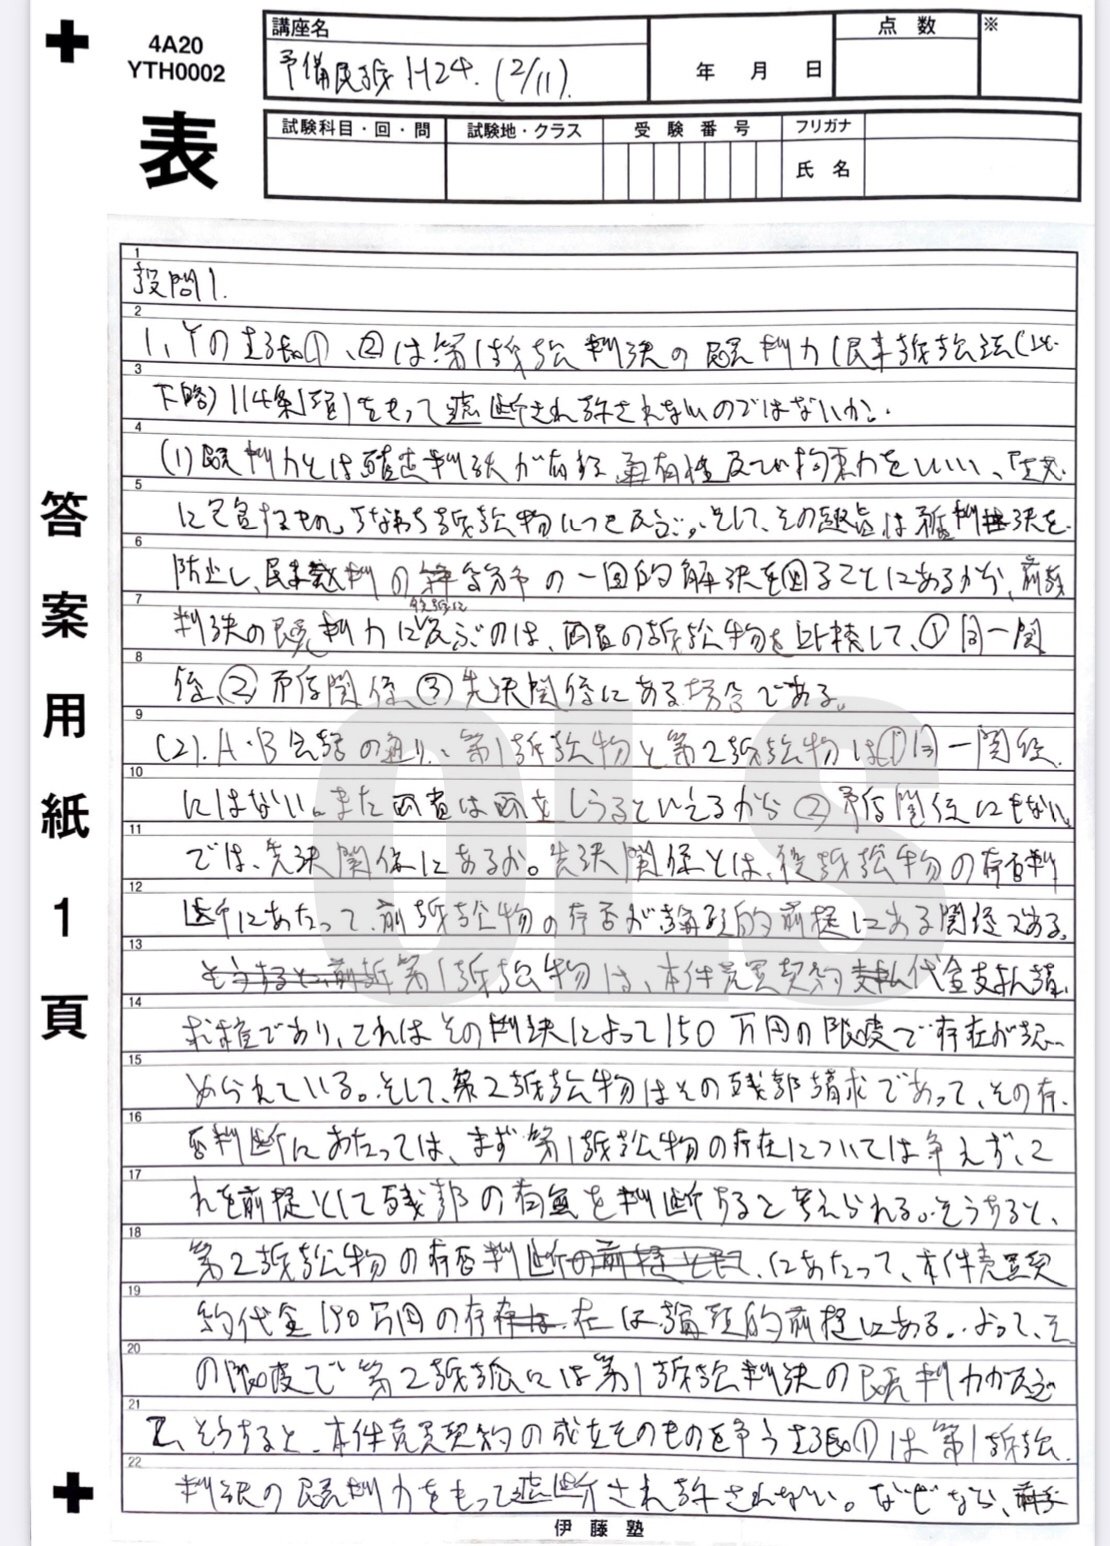 4A20
YTH0002
表
講座名
予備民訴 H24. (2/11).
年 月 日
点 数
※
試験科目・回・問
試験地・クラス
受 験 番 号
フリガナ
氏 名
答案用紙1頁
1
設問1.
2
1、Yの主張①、②は第1訴訟判決の既判力(民事訴訟法(以
3
下略)114条1項)をもって遮断され許されないのではないか。
4
(1)既判力とは確定判決が有する 拘束力をいい、「主文」
5
に包含するもの」すなわち訴訟物につき及ぶ。そして、その趣旨は矛盾判決を
6
防止し、民事 の 紛争の一回的解決を図ることにあるから、前訴
7
判決の既判力が後訴に及ぶのは、両者の訴訟物を比較して、①同一関
8
係、②矛盾関係、③先決関係にある場合である。
9
(2). A・B会話の通り、第1訴訟物と第2訴訟物は①同一関係
10
にはない。また両者は両立しうるといえるから②矛盾関係にもない。
11
では、先決関係にあるか。先決関係とは、後訴訴訟物の存否判
12
断にあたって、前訴訟物の存否が論理的前提にある関係である。
13
第1訴訟物は、本件売買契約 代金支払請
14
求権であり、これはその判決によって150万円の限度で存在が認
15
められている。そして、第2訴訟物はその残部請求であって、その存
16
否判断にあたっては、まず第1訴訟物の存在については争えず、こ
17
れを前提として残部の有無を判断すると考えられる。そうすると、
18
第2訴訟物の存否判断 にあたって、本件売買契
19
約代金150万円の存在は論理的前提にある。よって、そ
20
の限度で第2訴訟には第1訴訟判決の既判力が及ぶ
21
2、そうすると、本件売買契約の成立そのものを争う主張①は第1訴訟
22
判決の既判力をもって遮断され許されない。なぜなら、
伊 藤 塾
OLS